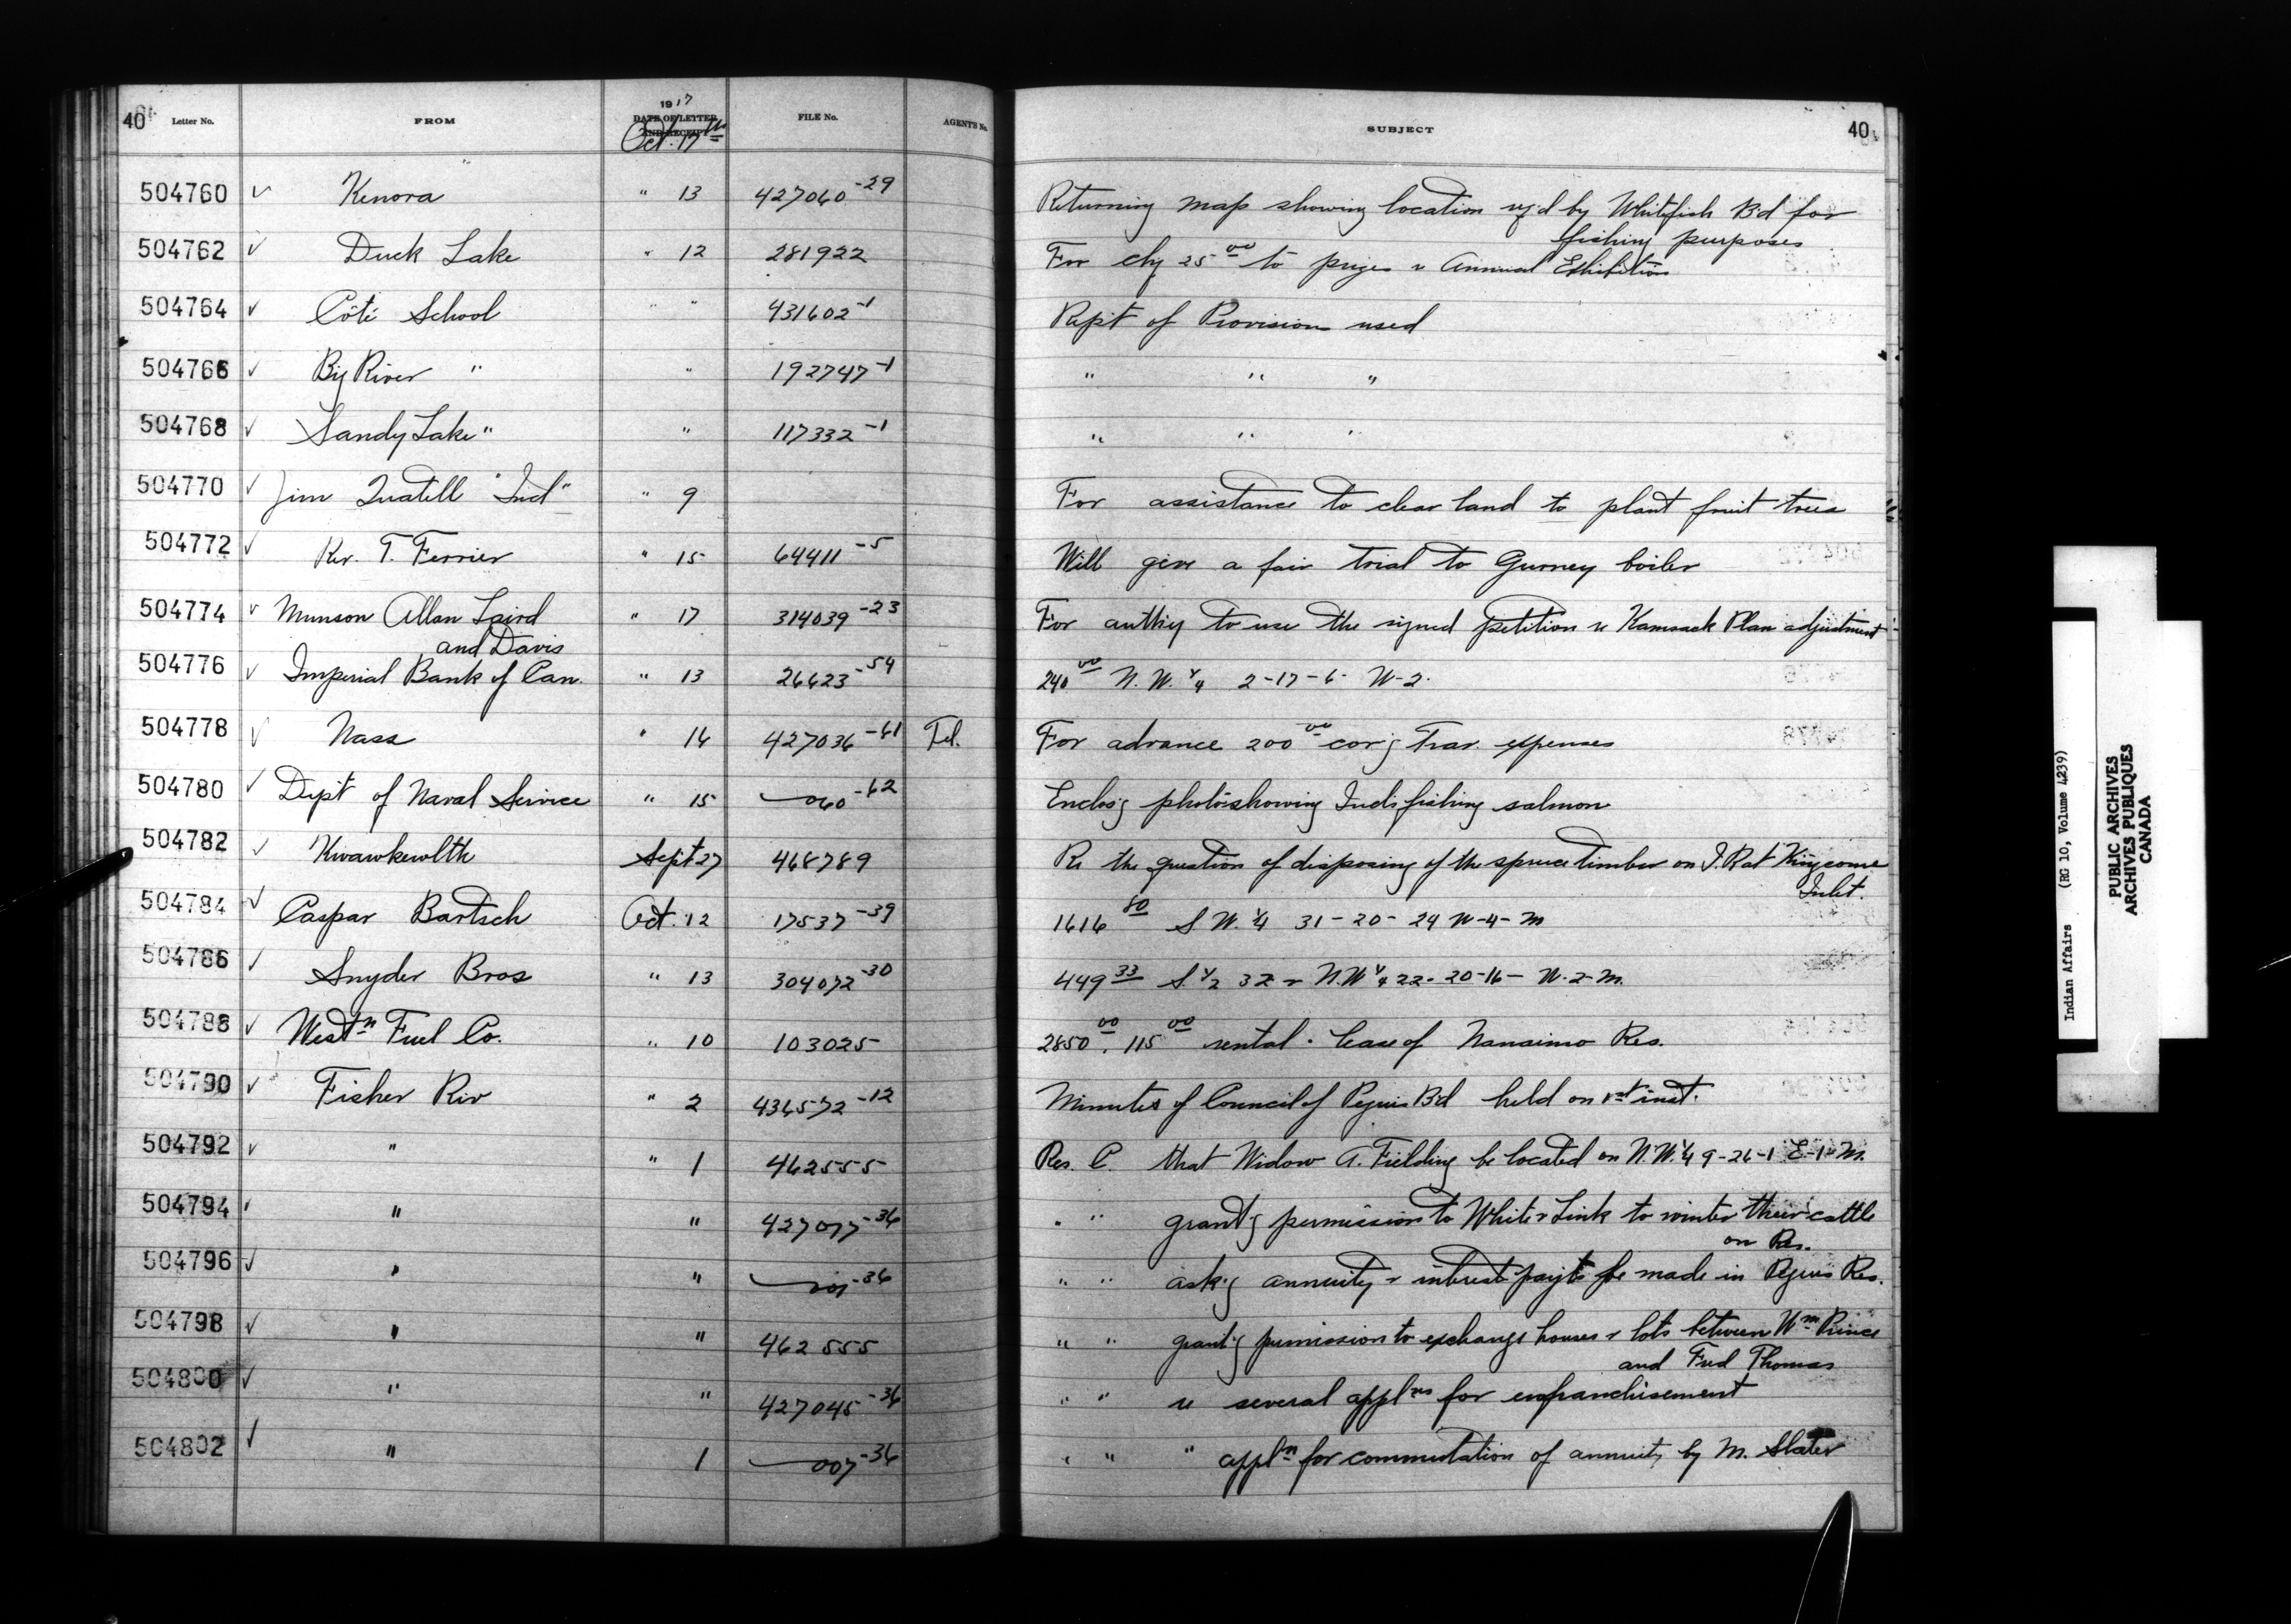 40 Letter No. FROM 1917 DATE OF LETTER AND RECEIPT FILE No. AGENT'S No. SUBJECT 40
Oct. 17th
504760 ✓ Kenora " 13 427060-29 Returning map showing location by Whitefish Bd for
fishing purposes
504762 ✓ Duck Lake " 12 281922 For chq 25 00 to prizes Annual Exhibition
504764 ✓ Côté School " " 431602-1 Rep't of Provisions used
504766 ✓ Big River " " 192747-1 " " "
504768 ✓ Sandy Lake " " 117332-1 " " "
504770 ✓ Jim "Ind" " 9 For assistance to clear land to plant fruit trees
504772 ✓ Rev. T. Ferrier " 15 64411-5 Will give a fair trial to Gurney boiler
504774 ✓ Munson Allan Laird " 17 314039-23 For auth'y to use the signed petition re Kamsack Plan adjustment
and Davis
504776 ✓ Imperial Bank of Can. " 13 26623-54 240 00 N.W. 1/4 2-17-6- W-2.
504778 ✓ Nass " 16 427036-61 Tel. For advance 200 00 cov'g Trav. expenses
504780 ✓ Dep't of Naval Service " 15 060-62 Enclos'g photo showing Inds fishing salmon
504782 ✓ Kwawkewlth Sept 27 468789 Re the question of disposing of the spruce timber on I.R at Kingcome
Inlet.
504784 ✓ Caspar Bartsch Oct. 12 17537-39 1616 80 S W. 1/4 31-20-24 W-4-M
504786 ✓ Snyder Bros " 13 304072-30 449 33 S. 1/2 32 N.W 1/4 22-20-16- W-2-M.
504788 ✓ West n Fuel Co. " 10 103025 2850 00. 115 00 rental. Lease of Nanaimo Res.
504790 ✓ Fisher Riv " 2 434572-12 Minutes of Council of Peguis Bd held on 1st inst.
504792 ✓ " " 1 462555 Res. C. that Widow A. Fielding be located on N.W. 1/4 9-26-1 E-1-M.
504794 " " 427077-36 " " grant'g permission to White & Sink to winter their cattle
on Res.
504796 ✓ " " -36 " " ask'g annuity & interest pay'ts be made in Peguis Res.
504798 ✓ " " 462555 " " grant'g permission to exchange houses & lots between Wm Prince
and Fred Thomas
504800 ✓ " " 427045-36 " " re several appl ns for enfranchisement
504802 ✓ " 1 007-36 " " " appl n for commutation of annuity by M. Slater
Indian Affairs (RG 10, Volume 4239)
PUBLIC ARCHIVES
ARCHIVES PUBLIQUES
CANADA